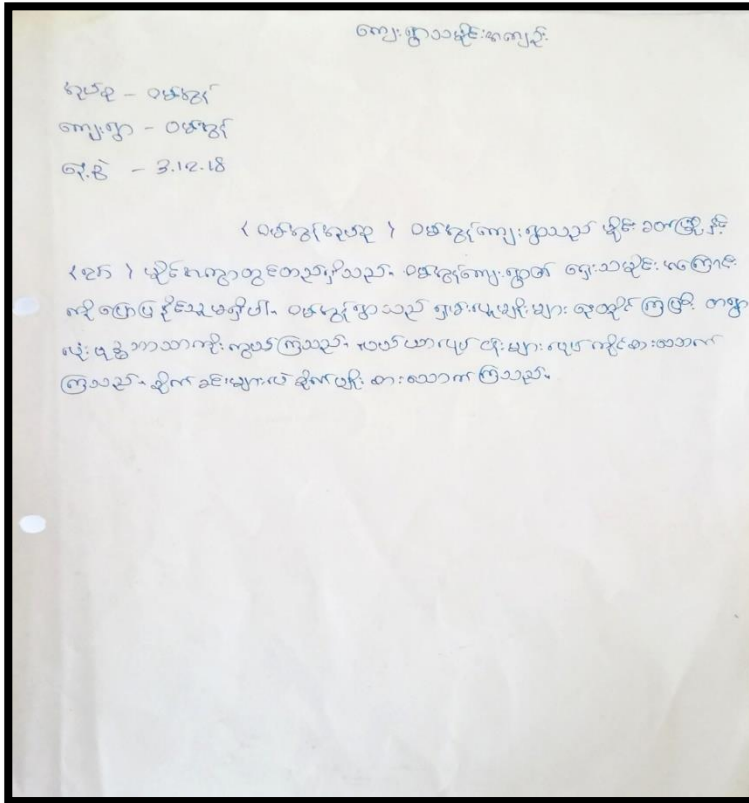 ကျေးရွာသမိုင်းအကျဉ်း
အုပ်စု - ဝမ်ကွန်
ကျေးရွာ - ဝမ်ကွန်
နေ့စွဲ - 3.12.18
(ဝမ်ကွန်အုပ်စု) ဝမ်ကွန်ကျေးရွာသည် မိုင်းခတ်မြို့နှင့်
မိုင်အကွာတွင်တည်ရှိသည်။ ဝမ်ကွန်ကျေးရွာ၏ ရှေးသမိုင်းအကြောင်း
ကိုပြောပြနိုင်သူမရှိပါ။ ဝမ်ကွန်ရွာသည် ရှမ်းလူမျိုးများ နေထိုင်ကြပြီး တစ်ရွာ
လုံးဗုဒ္ဓဘာသာကိုးကွယ်ကြသည်။ လယ်ယာလုပ်ငန်းများလုပ်ကိုင်စားသောက်
ကြသည်။ စိုက်ခင်းများလဲစိုက်ပျိုးစားသောက်ကြသည်။